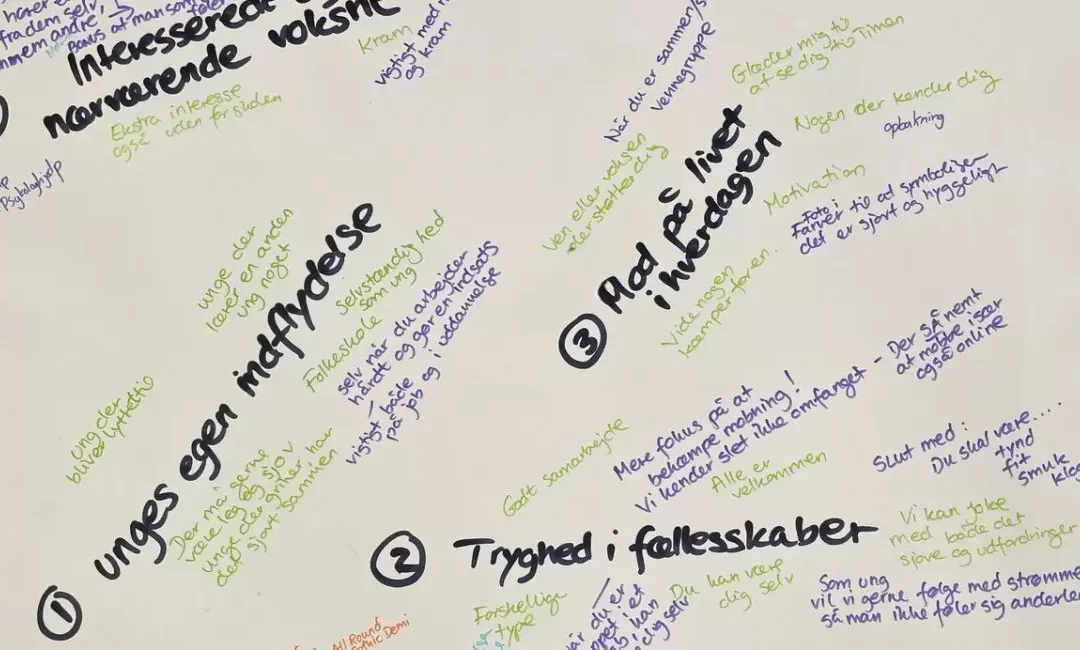 fra dem selv,
Interesserede
nærværende voksne
Ekstra interesse
også uden for skolen
Psykologhjælp
Kram
vigtigt med
og kram
Når du er sammen/
vennegruppe
Glæder mig til
at se dig til Timen
Nogen der kender dig
opbakning
Ven eller voksen
der støtter dig
③ Mod på livet
i hverdagen
Motivation
Foto i
Farver til at symboliser
det er sjovt og hyggeligt
Vide nogen
kæmper for en.
unge der
lærer en anden
ung noget
selvstændighed
som ung
Folkeskole
selv når du arbejder
hårdt og gør en indsats
vigtigt både
på job og i uddannelse
① unges egen indflydelse
ung der
bliver lyttet til
Der må gerne
være leg og sjov
unge der griner har
det sjovt sammen
Godt samarbejde
Mere fokus på at
bekæmpe mobning!
Vi kender slet ikke omfanget - Der SÅ nemt
at mobbe især
også online
Alle er
velkommen
Slut med:
Du skal være....
tynd
fit
smuk
② Tryghed i fællesskaber
Vi kan joke
med både det
sjove og udfordringer
Forskellige
type
når du er
Du kan være
dig selv
Som ung
vil vi gerne følge med strømme
så man ikke føler sig anderle
All Round
Gothic Demi